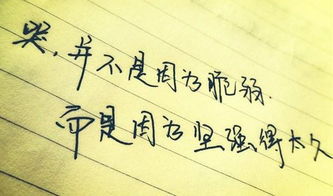 哭，并不是因为脆弱.
而是因为坚强得太久